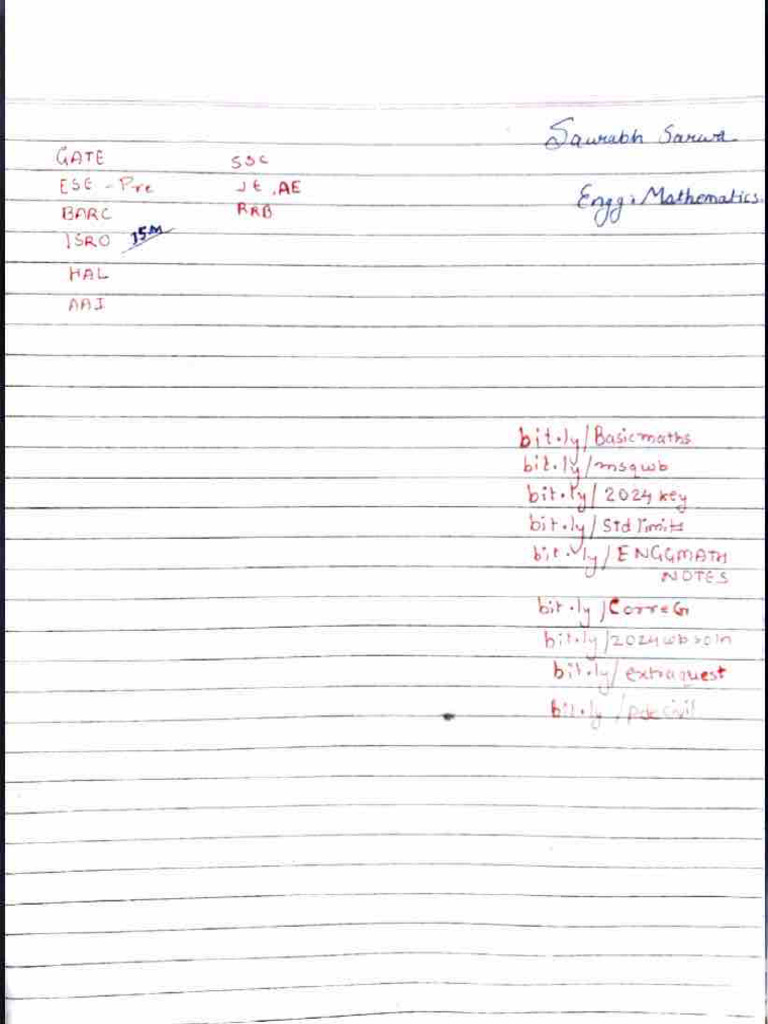 Saurabh Sarwa
Engg. Mathematics.
GATE
ESE - Pre
BARC
ISRO 15M
HAL
AAI
SSC
JE, AE
RRB
bit.ly/Basicmaths
bit.ly/msqwb
bit.ly/2024key
bit.ly/Stdlimits
bit.ly/ENGGMATH
NOTES
bit.ly/CorreG
bit.ly/2024wbsoln
bit.ly/extraquest
bit.ly/pdecivil